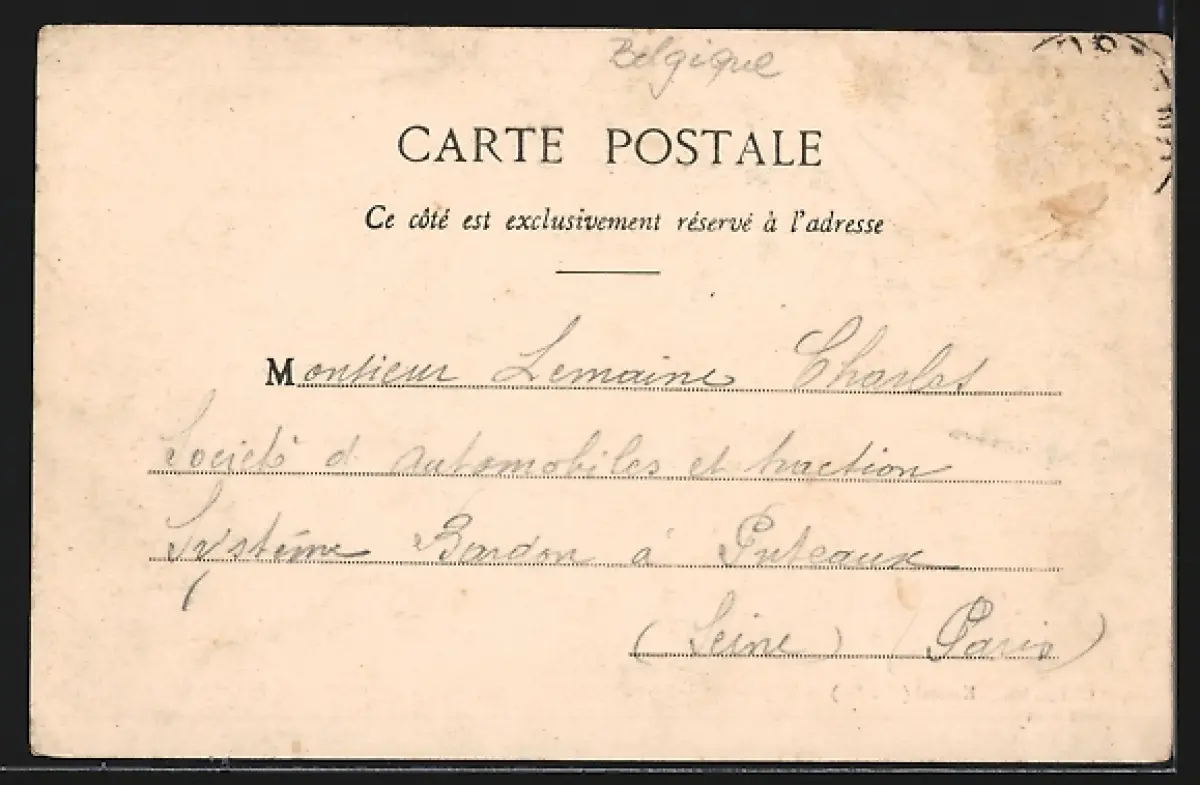 Belgique
CARTE POSTALE
Ce côté est exclusivement réservé à l'adresse
Monsieur Lemaine Charles
Société d automobiles et traction
Système Bardon à Puteaux
(Seine) (Paris)